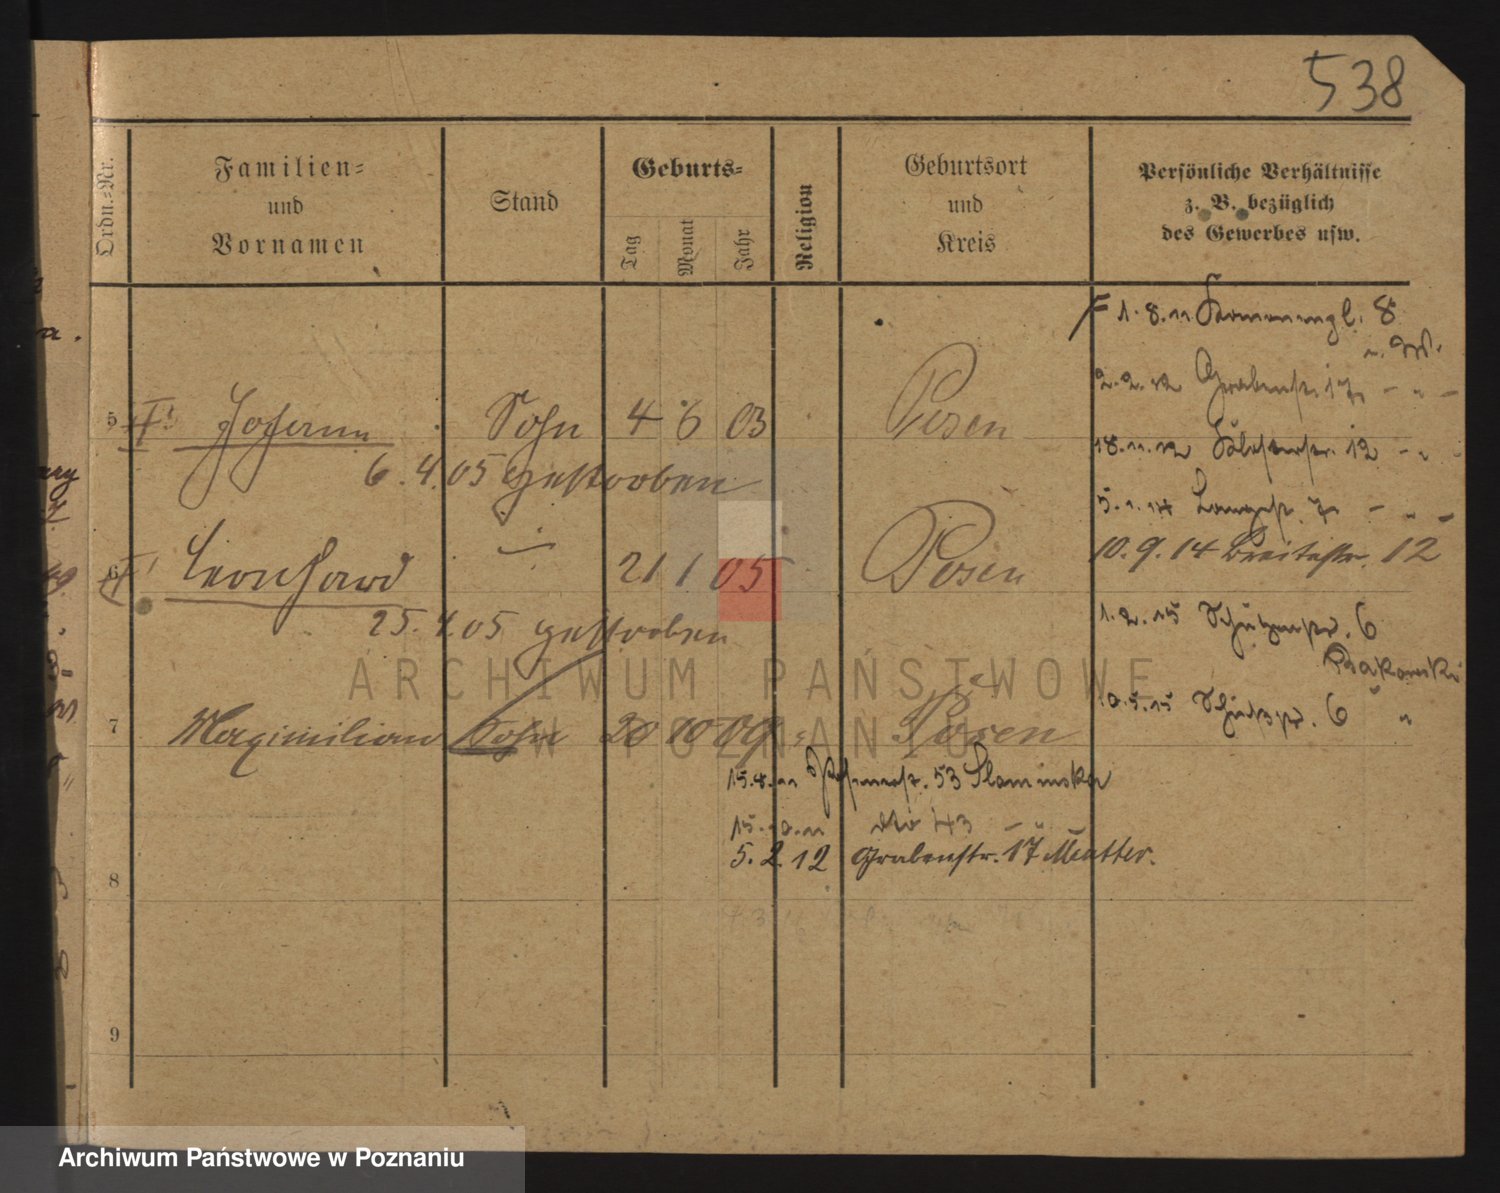 538
Ordn.-Nr.
Familien-
und
Vornamen
Stand
Geburts-
Tag
Monat
Jahr
Religion
Geburtsort
und
Kreis
Persönliche Verhältnisse
z. B. bezüglich
des Gewerbes usw.
1. 8. 11 8
2. 2. 12 Grabenstr. 17
5 Johann Sohn 4 6 03 Posen
18. 11. 12 12
6. 4. 05 gestorben
5. 1. 14 Langestr. 7
6 Leonhard 21 1 05 Posen
10. 9. 14 Breitestr. 12
25. 4. 05 gestorben
1. 2. 15 Schützenstr. 6
Rakowski
10. 5. 15 Schützstr. 6 "
7 Maximilian Sohn 20 10 09 Posen
15. 8. 11 53 Slaminska
15. 10. 11 dto 43
5. 2. 12 Grabenstr. 17 Mutter.
8
9
ARCHIWUM PAŃSTWOWE
W POZNANIU
Archiwum Państwowe w Poznaniu